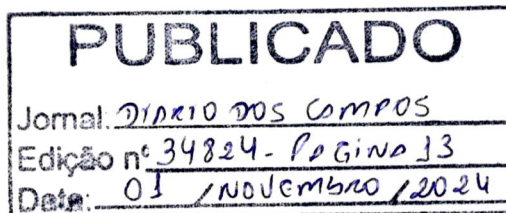 PUBLICADO
Jornal: DIARIO DOS CAMPOS
Edição nº 34824 - PAGINA 13
Data: 01 / NOVEMBRO / 2024